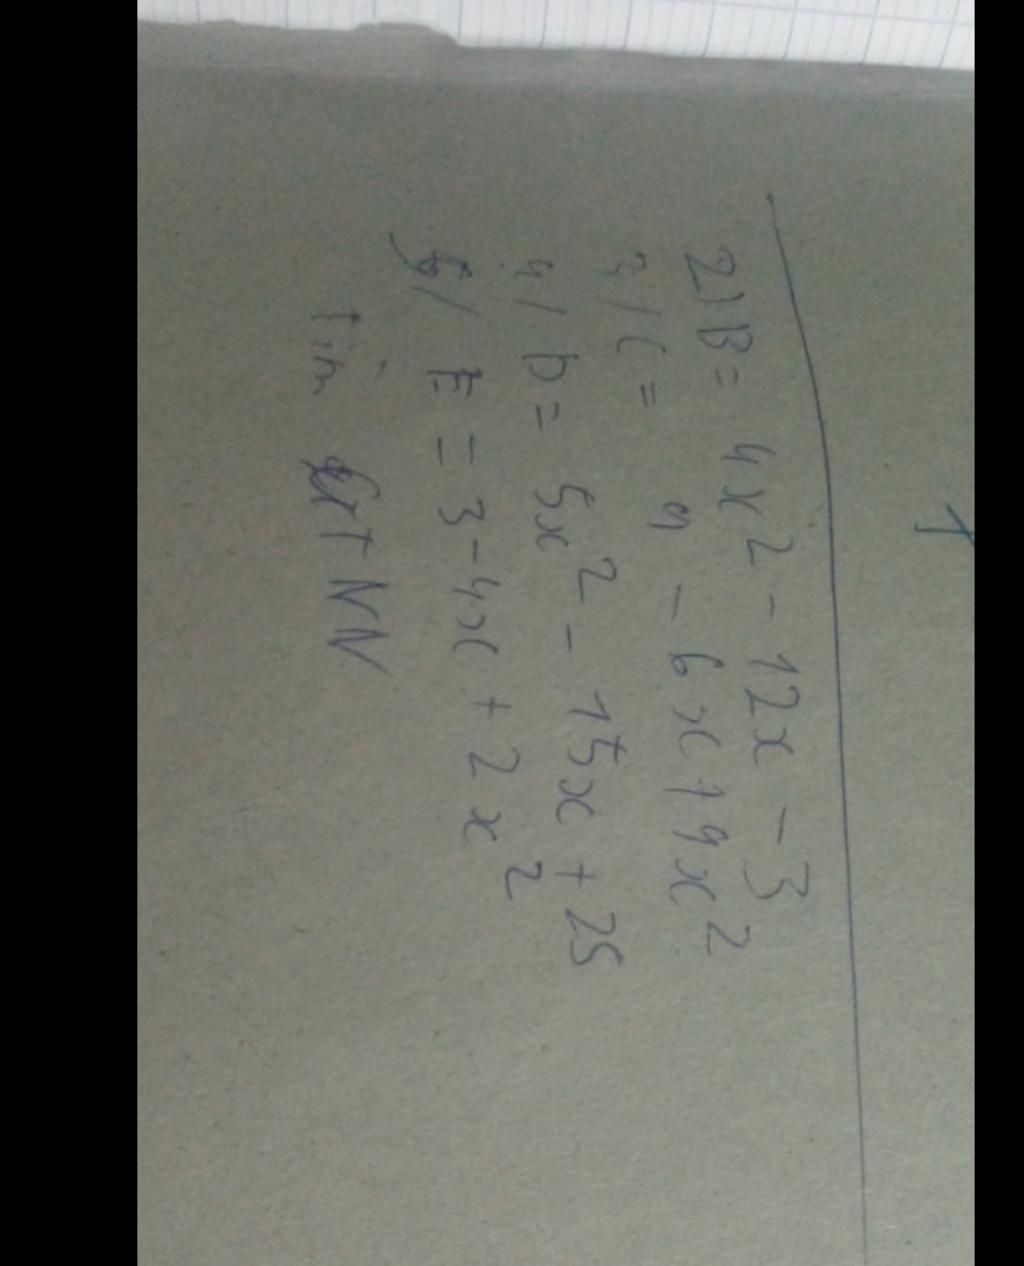 2) B = 4x² - 12x - 3
3/ C = 9 - 6x + 9x²
4/ D = 5x² - 15x + 25
5/ E = 3 - 4x + 2x²
Tìm GTNN